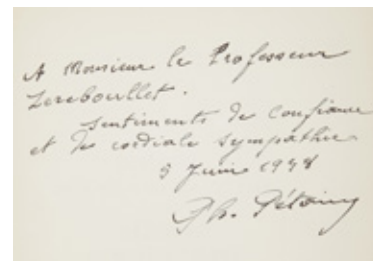 A Monsieur le Professeur
Lereboullet.
sentiments de confiance
et de cordiale sympathie
Juin
Ph. Pétain